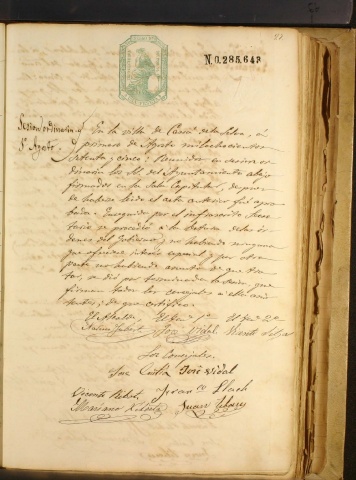 21
N.0.285.643
Sesion ordinaria
1º Agosto
En la villa de Cassá de la Selva, á
primero de Agosto mil ochocientos
setenta y cinco: Reunidos en sesion or-
dinaria los SS. del Ayuntamiento abajo
firmados en la Sala Capitular, despues
de haberse leido el acta anterior fué apro-
bada. Enseguida por el infrascrito Secre-
tario se procedió á la lectura de las ór-
denes del Gobierno y no habiendo ninguna
que ofreciera interés especial, y por otra
parte no habiendo asuntos de que tra-
tar, se dió por terminada la sesion, que
firman todos los concejales á ella asis-
tentes; de que certifico.
El Alcalde El Ten. 1º El Ten. 2º
José Vidal Vicente
Los Concejales
José José Vidal
Vicente Franco Llach
Mariano Juan